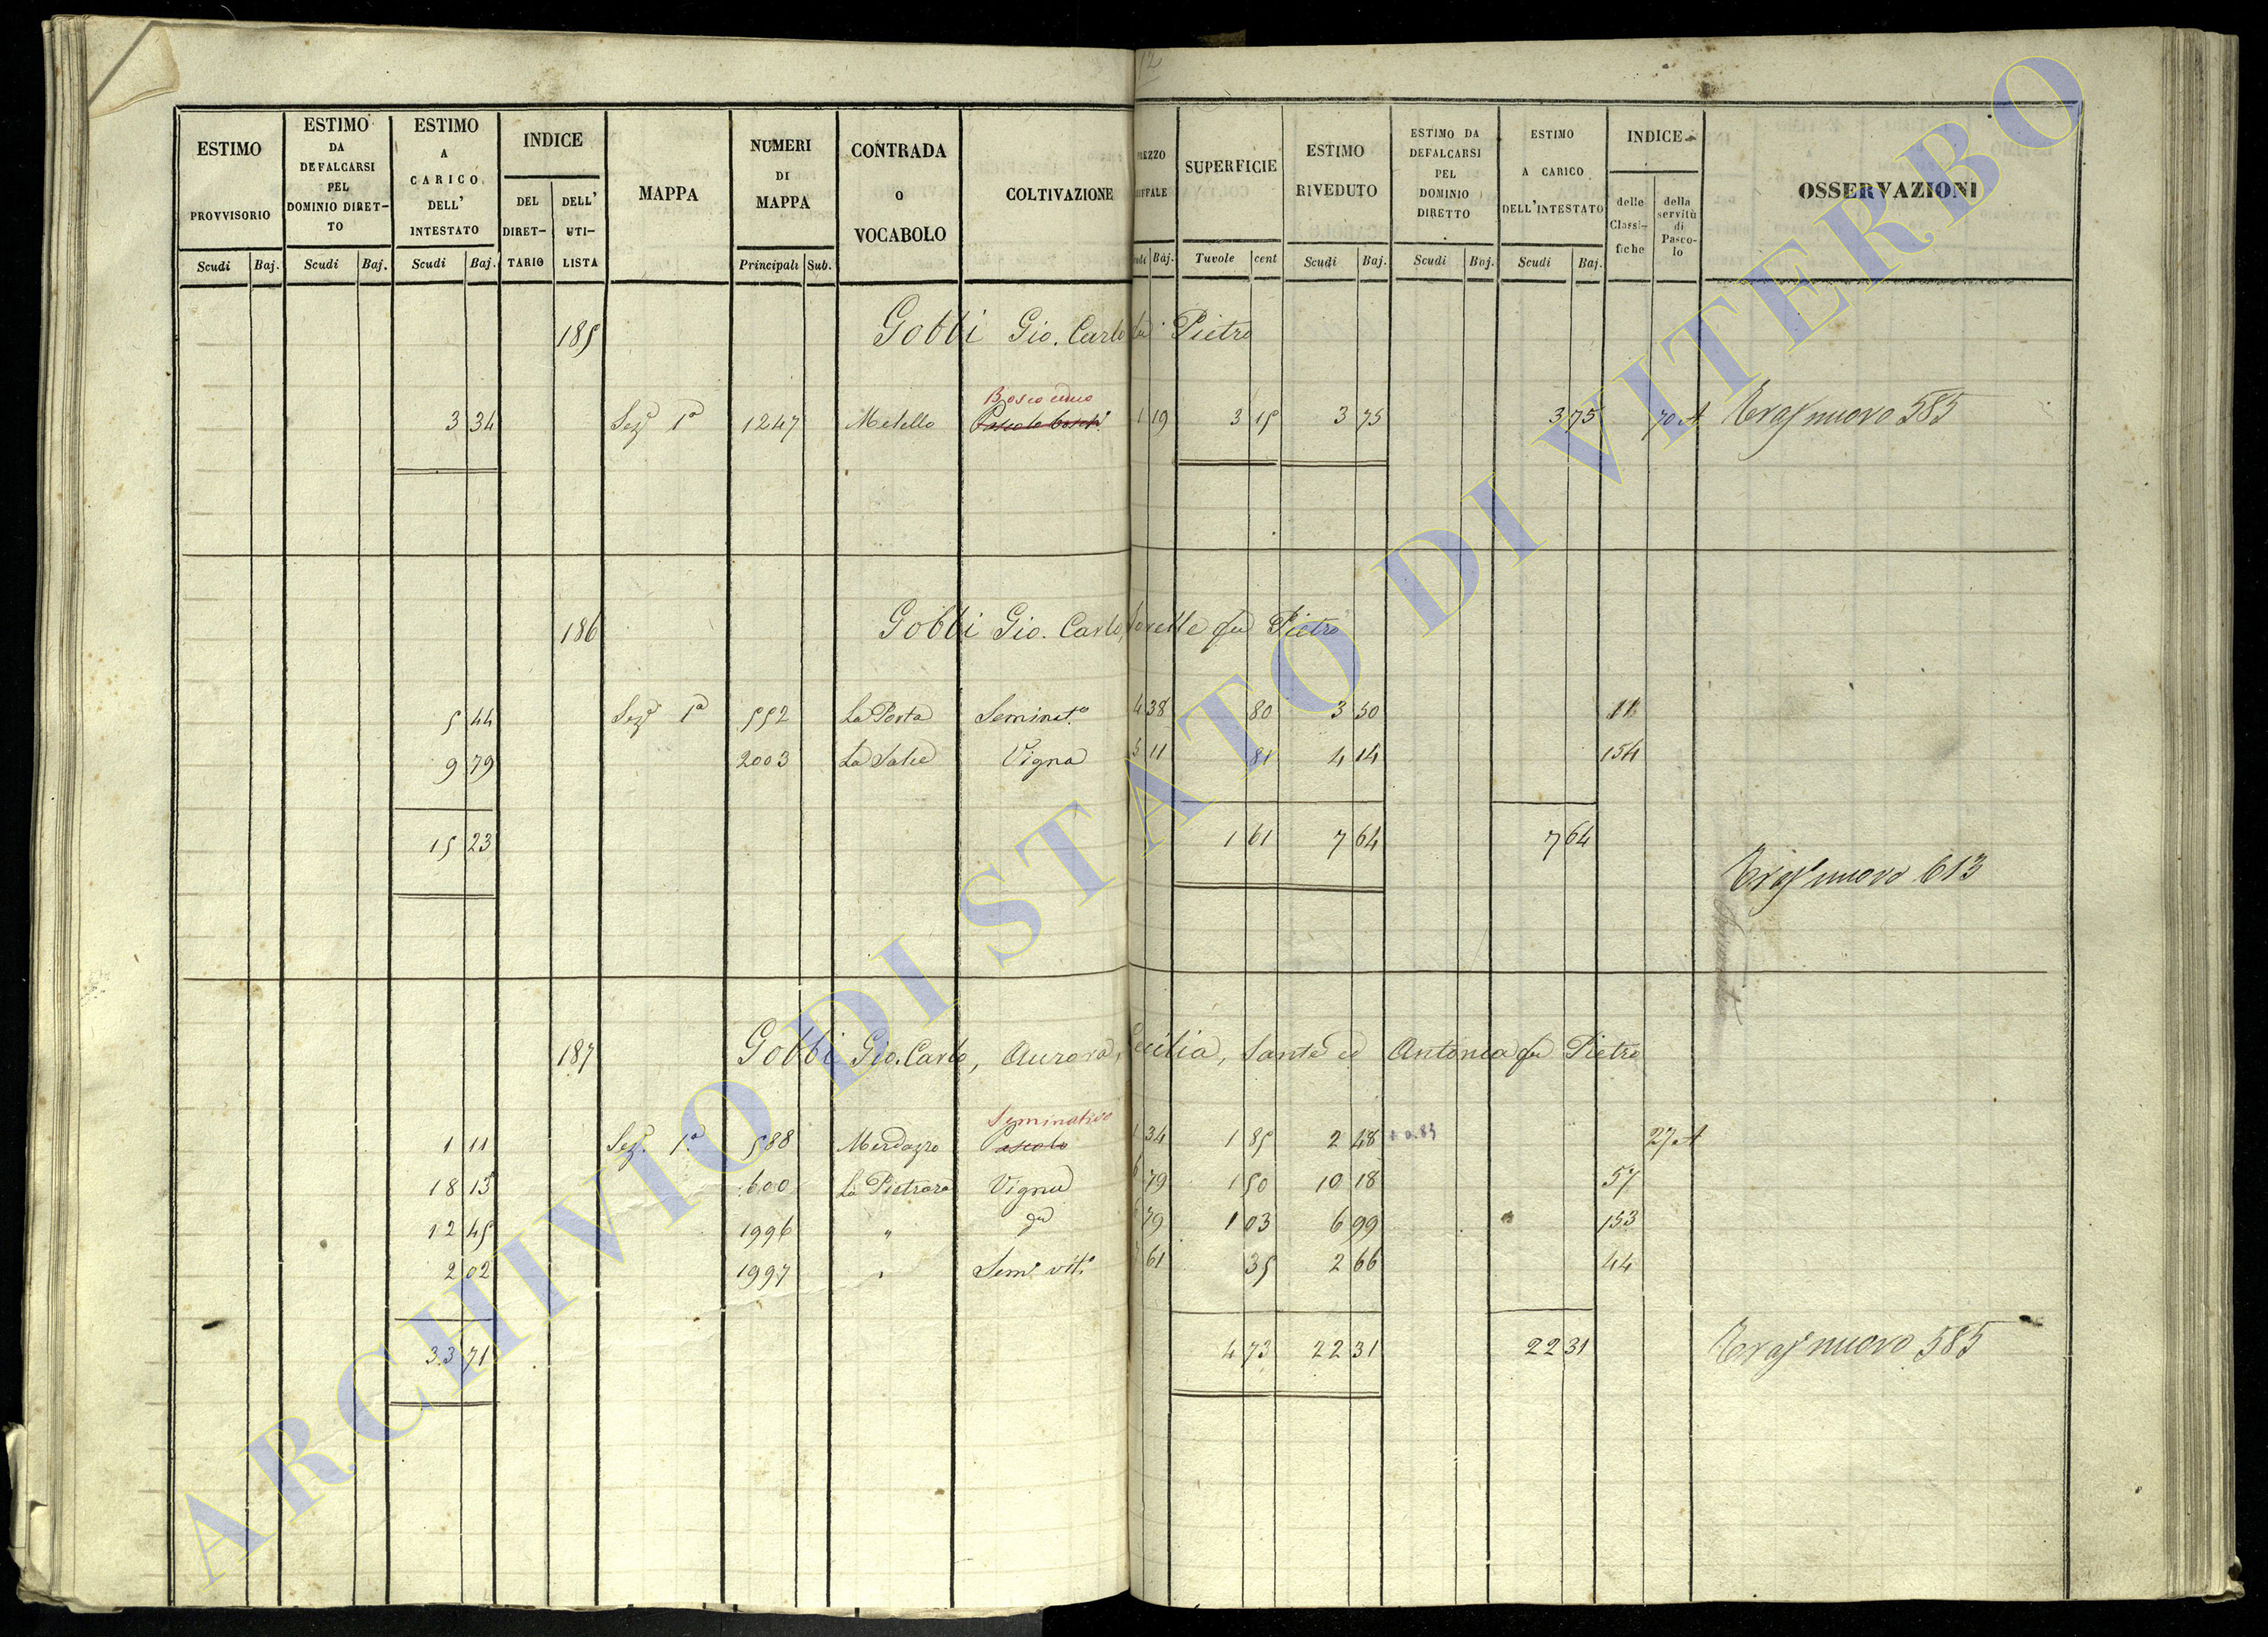 12
ESTIMO PROVVISORIO Scudi Baj.
ESTIMO DA DEFALCARSI PEL DOMINIO DIRET-TO Scudi Baj.
ESTIMO A CARICO DELL' INTESTATO Scudi Baj.
INDICE DEL DIRET-TARIO DELL' UTI-LISTA
MAPPA
NUMERI DI MAPPA Principali Sub.
CONTRADA O VOCABOLO
COLTIVAZIONE
SUPERFICIE Tavole cent
ESTIMO RIVEDUTO Scudi Baj.
ESTIMO DA DEFALCARSI PEL DOMINIO DIRETTO Scudi Baj.
ESTIMO A CARICO DELL'INTESTATO Scudi Baj.
INDICE delle Classi-fiche della servitù di Pasco-lo
OSSERVAZIONI
185 Gobbi Gio. Carlo fu Pietro
Bosco ceduo
3 34 Sezᵉ 1ª 1247 Metello 1 19 3 15 3 75 3 75 70 A Trasᵗ nuovo 585
186 Gobbi Gio. Carlo, Sorelle fu Pietro
5 44 Sezᵉ 1ª 552 La Porta Seminatº 4 38 80 3 50 11
9 79 2003 La Salce Vigna 5 11 81 4 14 154
15 23 1 61 7 64 7 64
Trasᵗ nuovo 613
187 Gobbi Gio. Carlo, Aurora, Cecilia, Sante ed Antonia fu Pietro
Seminativo
1 11 Sezᵉ 1ª 588 Merdazzo Pascolo 1 34 1 85 2 48 27 A
18 13 600 La Pietrara Vigna 6 79 1 50 10 18 57
12 45 1996 " dª 6 79 1 03 6 99 153
2 02 1997 " Semº vitº 7 61 35 2 66 44
33 71 4 73 22 31 22 31 Trasᵗ nuovo 585
ARCHIVIO DI STATO DI VITERBO